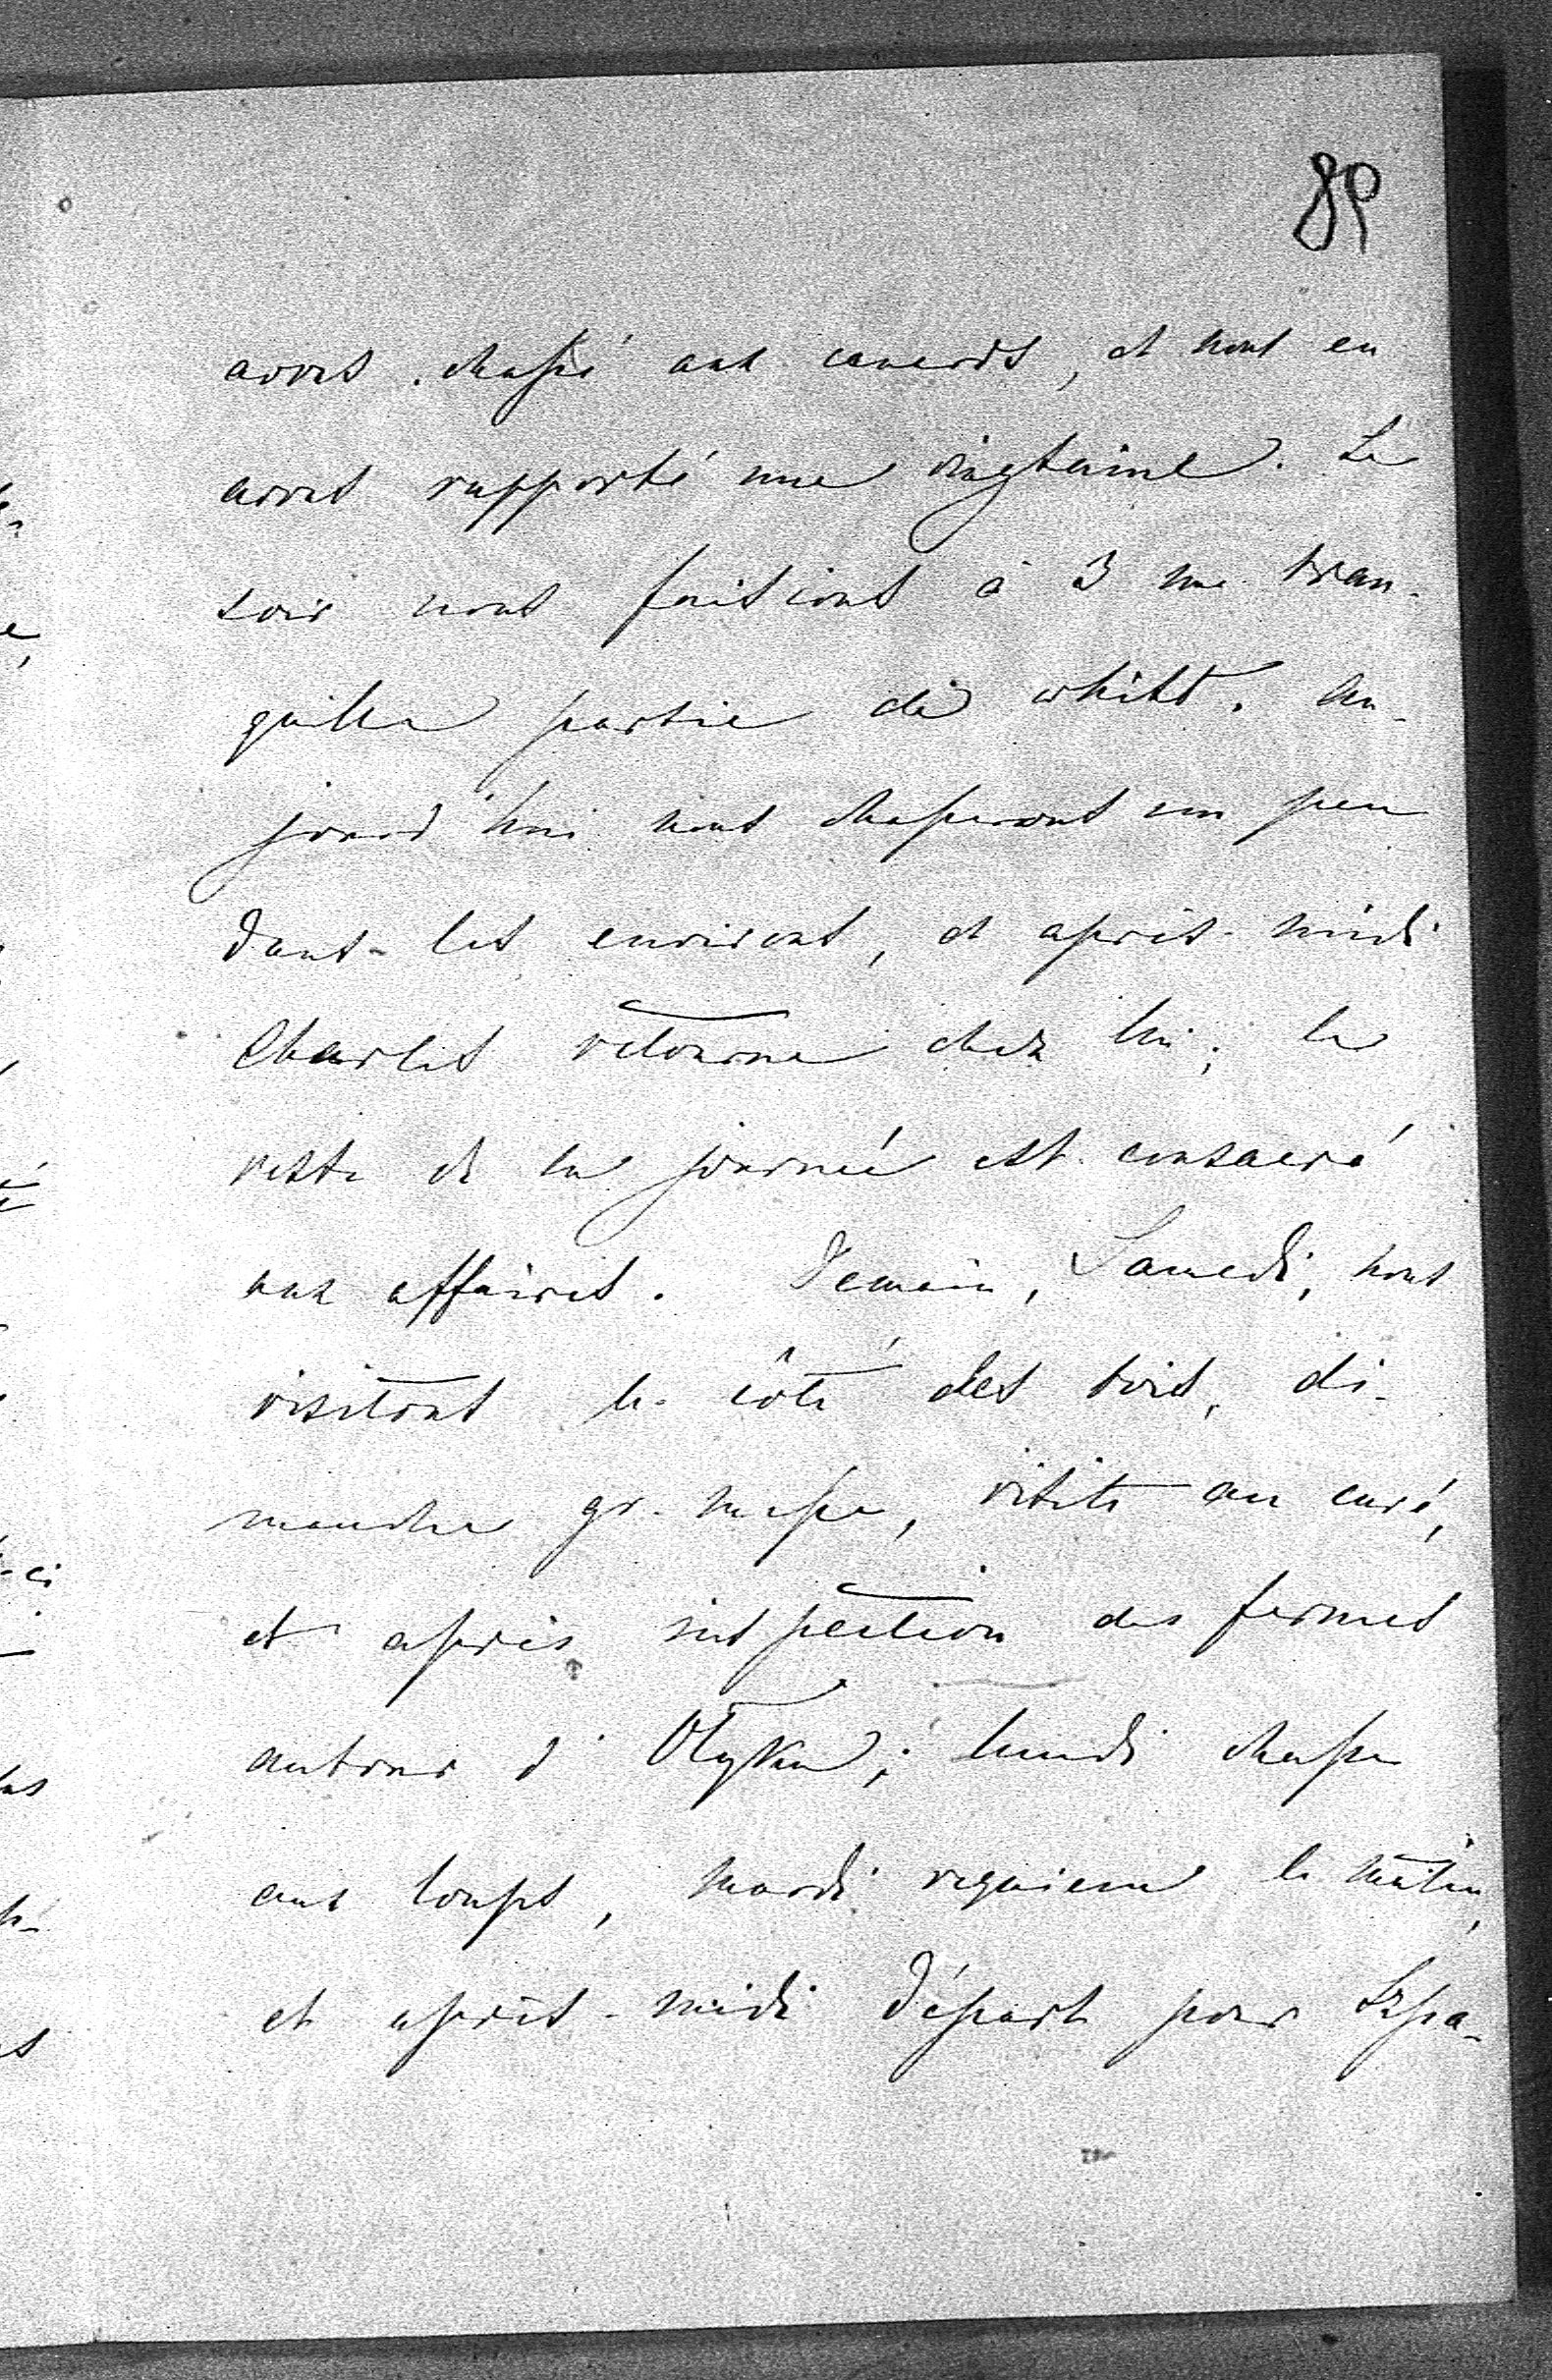 89
avons chassé aux canards, et nous en
avons rapporté une vingtaine. Le
soir nous faisions à 3 une tran-
quille partie de whist. Au-
jourd'hui nous chasserons un peu
dans les environs, et après-midi
Charles retourne chez lui; le
reste de la journée est consacré
aux affaires. Demain, Samedi, nous
visitons le côté des bois, di-
manche gr. messe, visite au curé,
et après inspection des fermes
autour d'Olyka; lundi chasse
aux loups, mardi requiem le matin,
et après-midi départ pour Szpa-